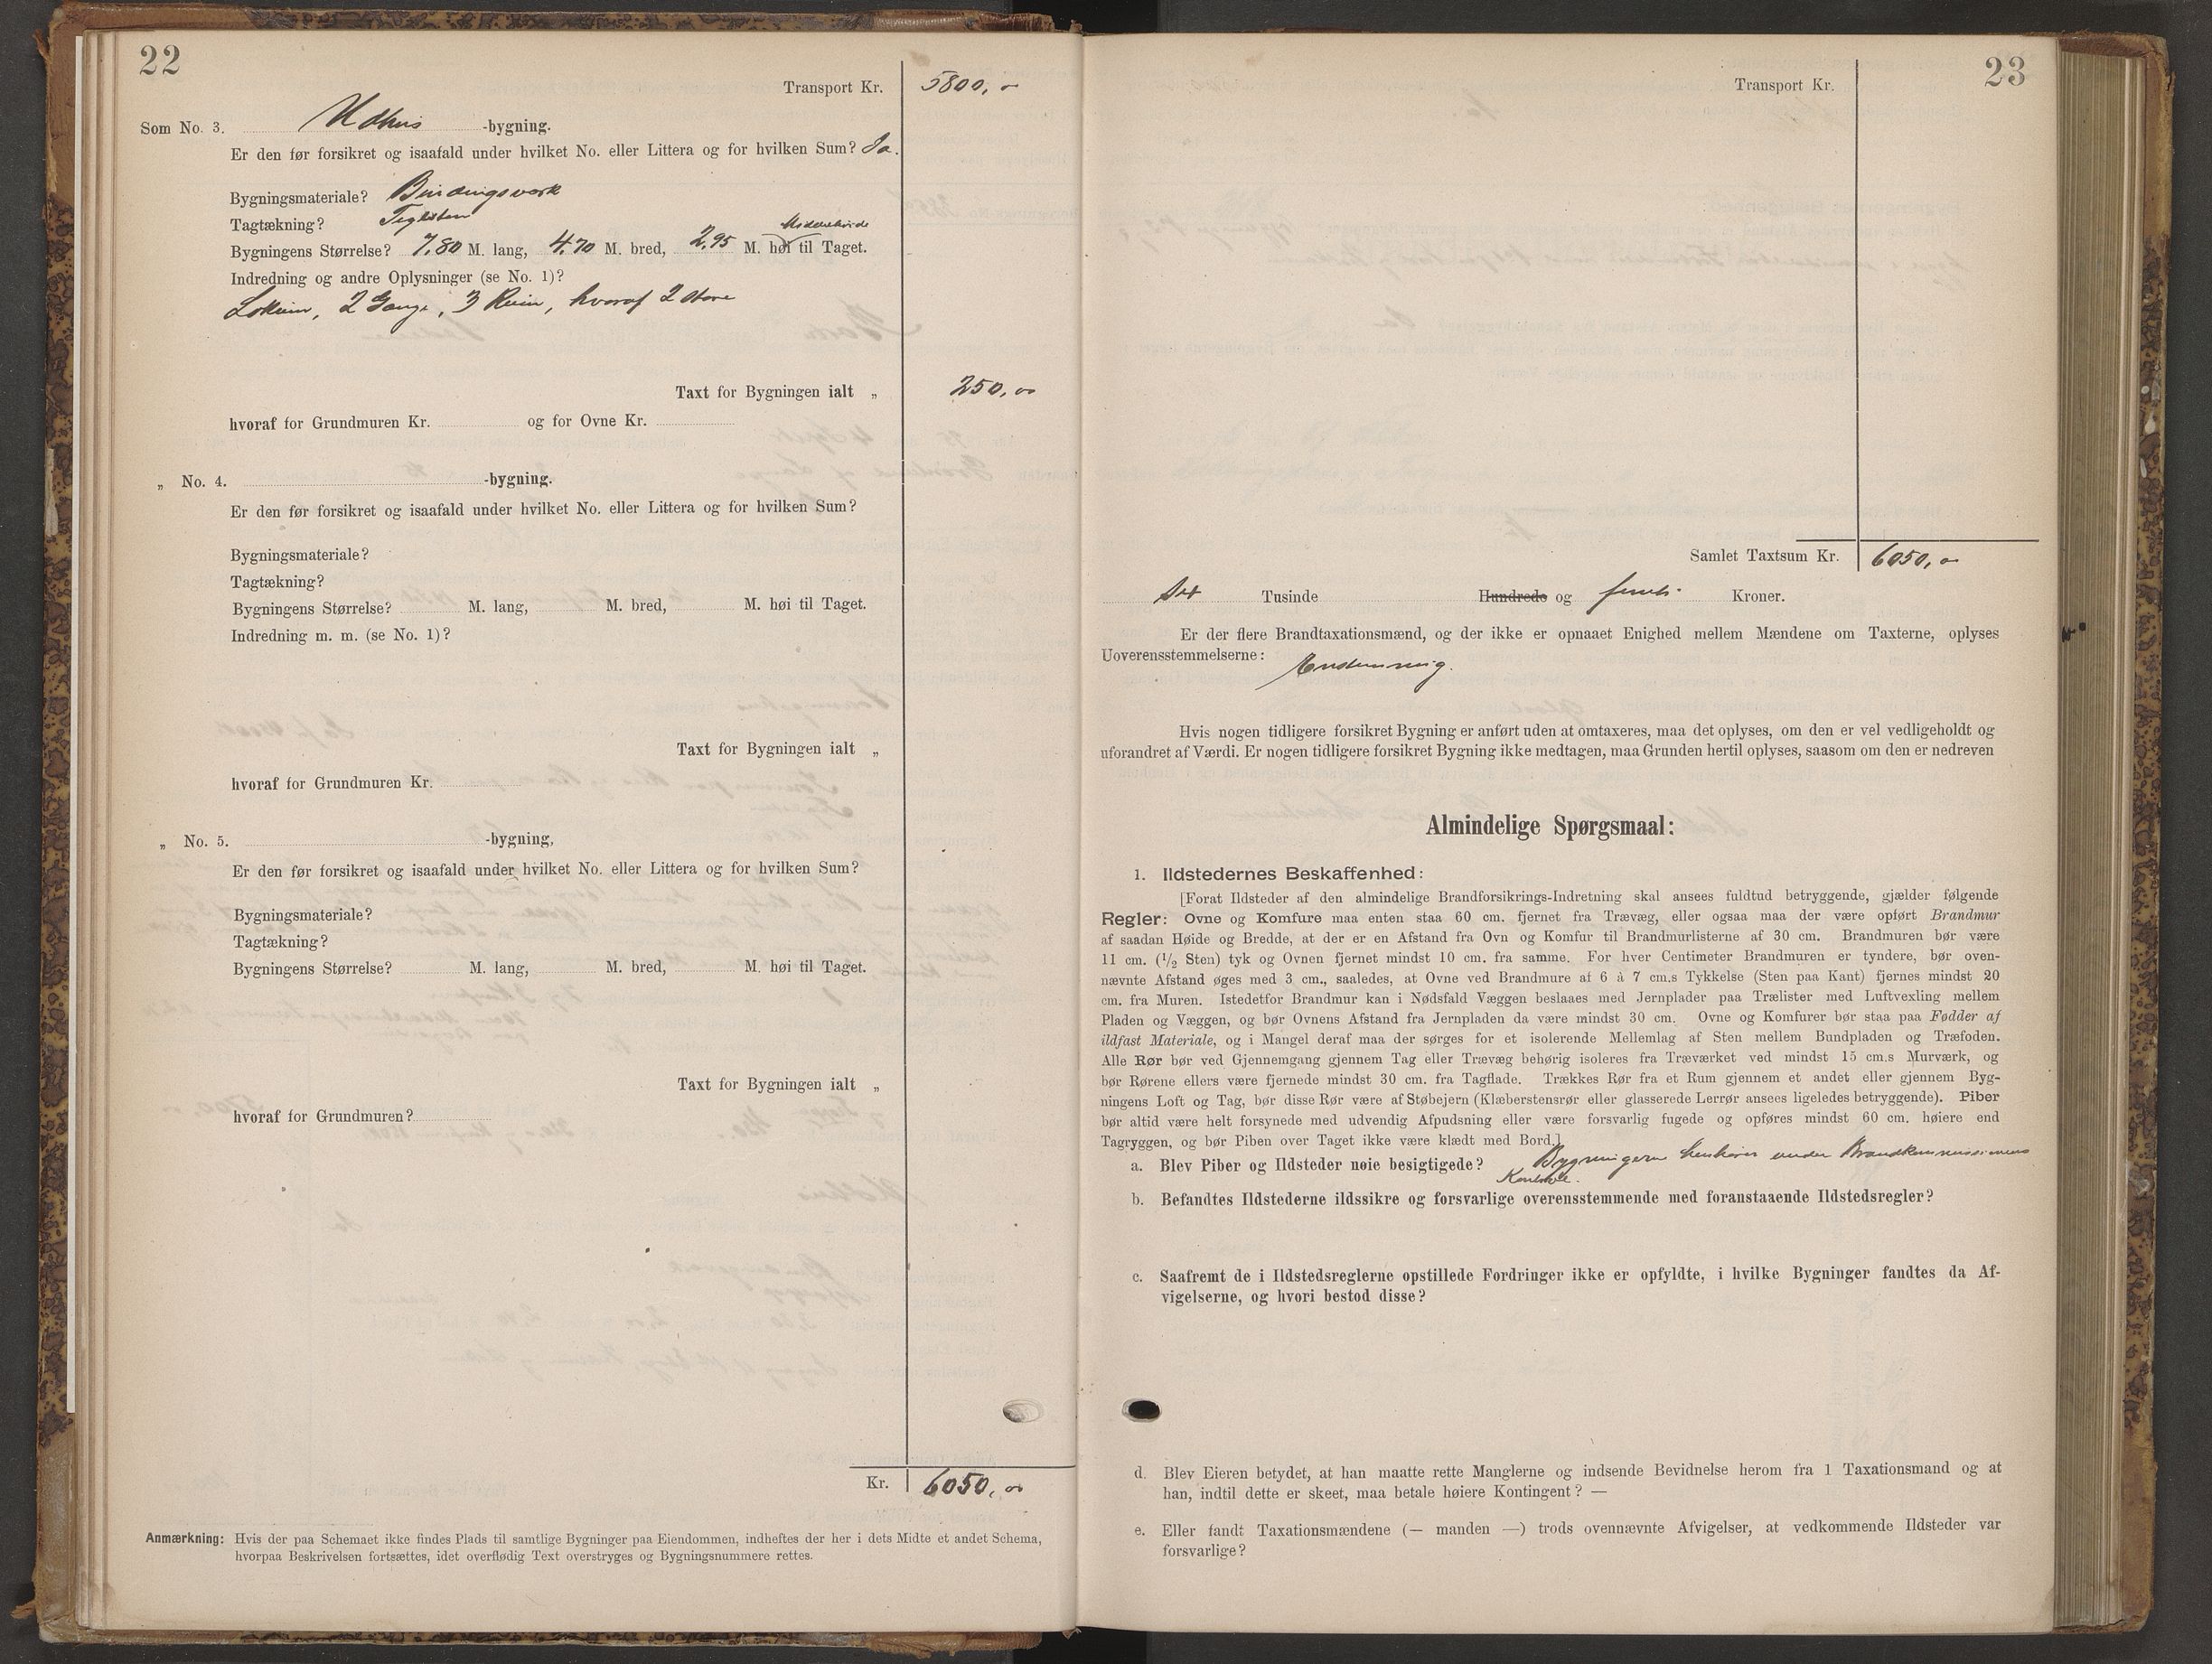 22
Transport Kr. 5800,-
Som No. 3. Udhus -bygning.
Er den før forsikret og isaafald under hvilket No. eller Littera og for hvilken Sum? Ja.
Bygningsmateriale? Bindingsværk
Tagtækning? Teglsten
Middelhøide
Bygningens Størrelse? 7,80 M. lang, 4,70 M. bred, 2,95 M. høi til Taget.
Indredning og andre Oplysninger (se No. 1)?
Lokum, 2 Gange, 3 Rum, hvoraf 2 store
Taxt for Bygningen ialt „ 250,00
hvoraf for Grundmuren Kr. og for Ovne Kr.
„ No. 4. -bygning.
Er den før forsikret og isaafald under hvilket No. eller Littera og for hvilken Sum?
Bygningsmateriale?
Tagtækning?
Bygningens Størrelse? M. lang, M. bred, M. høi til Taget.
Indredning m. m. (se No. 1)?
Taxt for Bygningen ialt „
hvoraf for Grundmuren Kr.
„ No. 5. -bygning,
Er den før forsikret og isaafald under hvilket No. eller Littera og for hvilken Sum?
Bygningsmateriale?
Tagtækning?
Bygningens Størrelse? M. lang, M. bred, M. høi til Taget.
Taxt for Bygningen ialt „
hvoraf for Grundmuren?
Kr. 6050,00
Anmærkning: Hvis der paa Schemaet ikke findes Plads til samtlige Bygninger paa Eiendommen, indheftes der her i dets Midte et andet Schema,
hvorpaa Beskrivelsen fortsættes, idet overflødig Text overstryges og Bygningsnummere rettes.
23
Transport Kr.
Samlet Taxtsum Kr. 6050,-
Sex Tusinde Hundrede og femti Kroner.
Er der flere Brandtaxationsmænd, og der ikke er opnaaet Enighed mellem Mændene om Taxterne, oplyses
Uoverensstemmelserne:
Enstemmig.
Hvis nogen tidligere forsikret Bygning er anført uden at omtaxeres, maa det oplyses, om den er vel vedligeholdt og
uforandret af Værdi. Er nogen tidligere forsikret Bygning ikke medtagen, maa Grunden hertil oplyses, saasom om den er nedreven
Almindelige Spørgsmaal:
1. Ildstedernes Beskaffenhed:
[Forat Ildsteder af den almindelige Brandforsikrings-Indretning skal ansees fuldtud betryggende, gjælder følgende
Regler: Ovne og Komfure maa enten staa 60 cm. fjernet fra Trævæg, eller ogsaa maa der være opført Brandmur
af saadan Høide og Bredde, at der er en Afstand fra Ovn og Komfur til Brandmurlisterne af 30 cm. Brandmuren bør være
11 cm. (1/2 Sten) tyk og Ovnen fjernet mindst 10 cm. fra samme. For hver Centimeter Brandmuren er tyndere, bør oven-
nævnte Afstand øges med 3 cm., saaledes, at Ovne ved Brandmure af 6 à 7 cm.s Tykkelse (Sten paa Kant) fjernes mindst 20
cm. fra Muren. Istedetfor Brandmur kan i Nødsfald Væggen beslaaes med Jernplader paa Trælister med Luftvexling mellem
Pladen og Væggen, og bør Ovnens Afstand fra Jernpladen da være mindst 30 cm. Ovne og Komfurer bør staa paa Fødder af
ildfast Materiale, og i Mangel deraf maa der sørges for et isolerende Mellemlag af Sten mellem Bundpladen og Træfoden.
Alle Rør bør ved Gjennemgang gjennem Tag eller Trævæg behørig isoleres fra Træværket ved mindst 15 cm.s Murværk, og
bør Rørene ellers være fjernede mindst 30 cm. fra Tagflade. Trækkes Rør fra et Rum gjennem et andet eller gjennem Byg-
ningens Loft og Tag, bør disse Rør være af Støbejern (Klæberstensrør eller glasserede Lerrør ansees ligeledes betryggende). Piber
bør altid være helt forsynede med udvendig Afpudsning eller være forsvarlig fugede og opføres mindst 60 cm. høiere end
Tagryggen, og bør Piben over Taget ikke være klædt med Bord.]
a. Blev Piber og Ildsteder nøie besigtigede? Bygningerne henhører under Brandkommissionens
Kontrolle.
b. Befandtes Ildstederne ildssikre og forsvarlige overensstemmende med foranstaaende Ildstedsregler?
c. Saafremt de i Ildstedsreglerne opstillede Fordringer ikke er opfyldte, i hvilke Bygninger fandtes da Af-
vigelserne, og hvori bestod disse?
d. Blev Eieren betydet, at han maatte rette Manglerne og indsende Bevidnelse herom fra 1 Taxationsmand og at
han, indtil dette er skeet, maa betale høiere Kontingent? —
e. Eller fandt Taxationsmændene (— manden —) trods ovennævnte Afvigelser, at vedkommende Ildsteder var
forsvarlige?